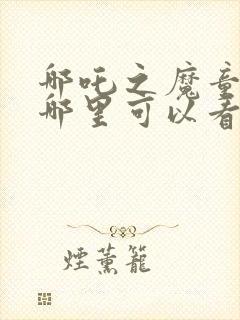 哪吒之魔童
哪里可以看
煙薰籠